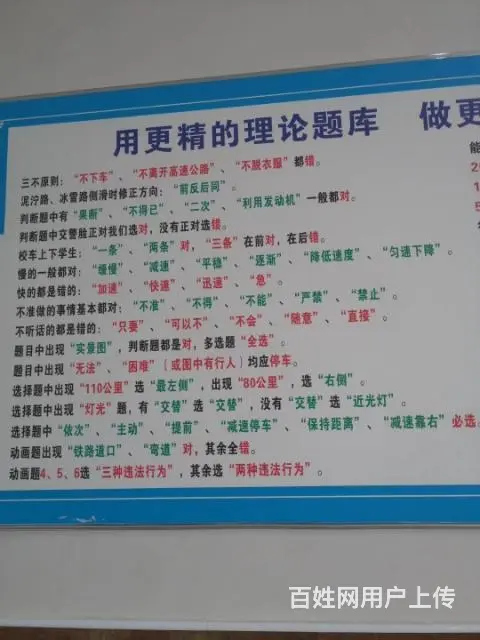 用更精的理论题库 做更
三不原则：“不下车”、“不离开高速公路”、“不脱衣服”都错。
泥泞路、冰雪路侧滑时修正方向：“前反后同”。
判断题中有“果断”、“不得已”、“二次”、“利用发动机”一般都对。
判断题中交警脸正对我们选对，没有正对选错。
校车上下学生：“一条”、“两条”对，“三条”在前对，在后错。
慢的一般都对：“缓慢”、“减速”、“平稳”、“逐渐”、“降低速度”、“匀速下降”。
快的都是错的：“加速”、“快速”、“迅速”、“急”。
不准做的事情基本都对：“不准”、“不得”、“不能”、“严禁”、“禁止”。
不听话的都是错的：“只要”、“可以不”、“不会”、“随意”、“直接”。
题目中出现“实景图”，判断题都是对，多选题“全选”。
题目中出现“无法”、“困难”（或图中有行人）均应停车。
选择题中出现“110公里”选“最左侧”，出现“80公里”，选“右侧”。
选择题中出现“灯光”题，有“交替”选“交替”，没有“交替”选“近光灯”。
选择题中“依次”、“主动”、“提前”、“减速停车”、“保持距离”、“减速靠右”必选。
动画题出现“铁路道口”、“弯道”对，其余全错。
动画题4、5、6选“三种违法行为”，其余选“两种违法行为”。
能
百姓网用户上传